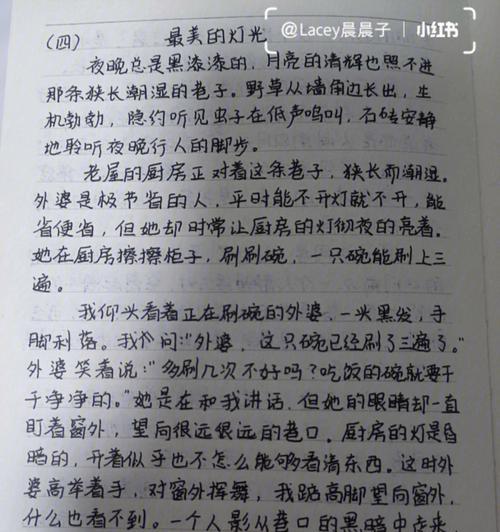 @Lacey晨晨子 小红书
(四) 最美的灯光
夜晚总是黑漆漆的，月亮的清辉也照不进
那条狭长潮湿的巷子。野草从墙角边长出，生
机勃勃，隐约听见虫子在低声鸣叫，石砖安静
地聆听夜晚行人的脚步。
老屋的厨房正对着这条巷子，狭长而潮湿。
外婆是极节省的人，平时能不开灯就不开，能
省便省，但她却时常让厨房的灯彻夜的亮着。
她在厨房擦擦柜子，刷刷碗，一只碗能刷上三
遍。
我仰头看着正在刷碗的外婆，一头黑发，手
脚利落。我问："外婆，这只碗已经刷了三遍了。"
外婆笑着说："多刷几次不好吗？吃饭的碗就要干
干净净的。"她是在和我讲话，但她的眼睛却一直
盯着窗外，望向很远很远的巷口。厨房的灯是昏
暗的，开着似乎也不怎么能够看清东西。这时外
婆高举着手，对窗外挥舞，我踮高脚望向窗外，
什么也看不到。一个人影从巷口的黑暗中走来